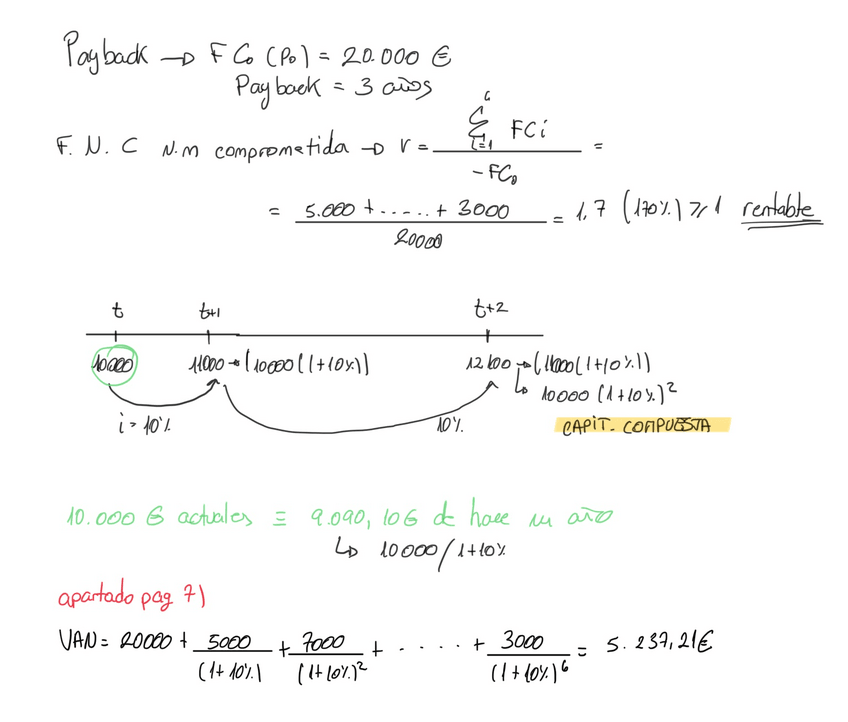 Payback → FC₀ (P₀) = 20.000 €
Payback = 3 años
F. N. C N.m comprometida → r = \frac{\sum_{i=1}^{6} FCi}{-FC₀} =
= \frac{5.000 + ..... + 3000}{20000} = 1,7 (170%) ≥ 1 rentable
t t+1 t+2
10000 11000 → (10000(1+10%)) 12100 → (11000(1+10%))
↳ 10000 (1+10%)²
i = 10% 10% CAPIT. COMPUESTA
10.000 € actuales ≡ 9.090,10€ de hace un año
↳ 10000/1+10%
apartado pag 7)
VAN = 20000 + \frac{5000}{(1+10%)} + \frac{7000}{(1+10%)²} + ..... + \frac{3000}{(1+10%)⁶} = 5.237,21€